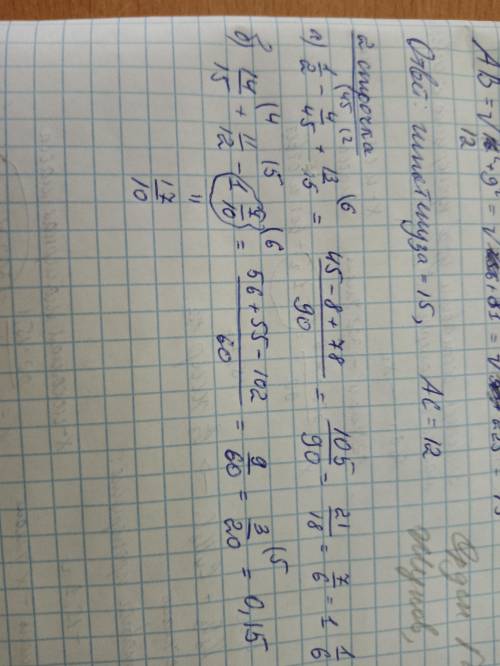 AB = √ + 9² = √ + 81 = √225 = 15
12
Ответ: гипотенуза = 15, AC = 12
2 строчка
а) 1/2 (45 - 4/45 (2 + 13/15 (6 = (45 - 8 + 78)/90 = 105/90 = 21/18 = 7/6 = 1 1/6
б) 14/15 (4 + 11/12 (5 - 1 7/10 (6 = (56 + 55 - 102)/60 = 9/60 = 3/20 (5 = 0,15
=
17/10